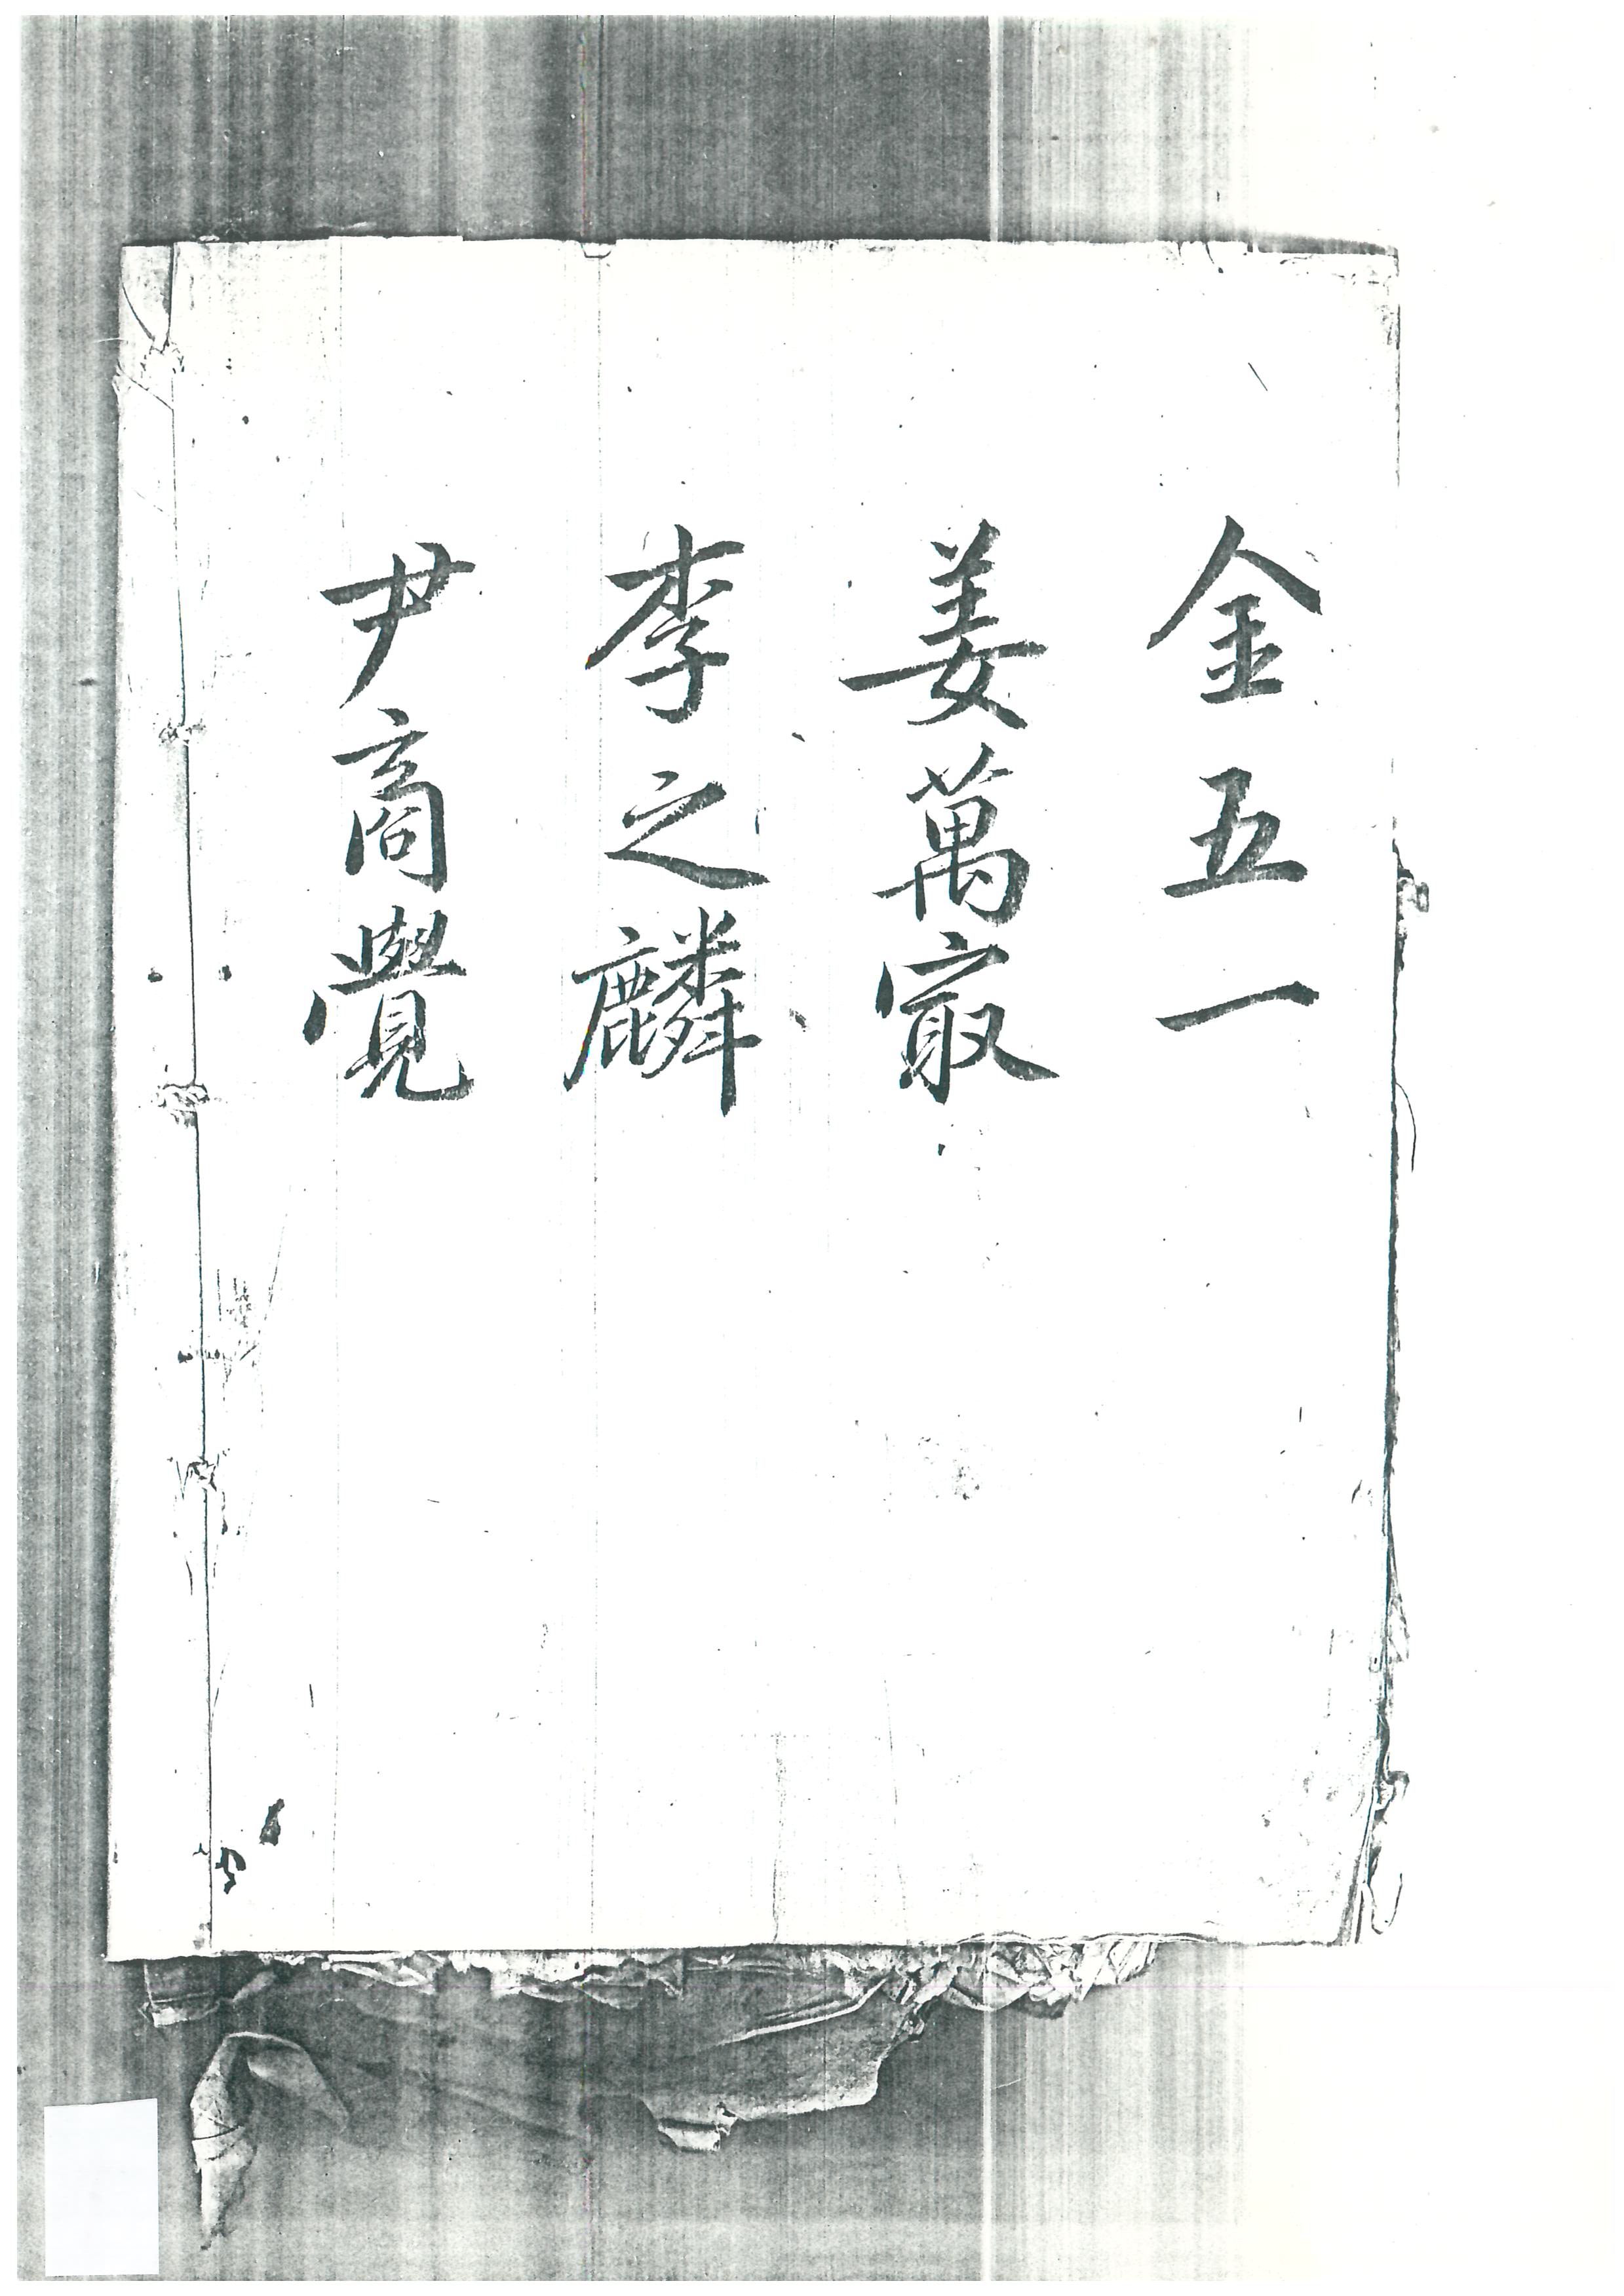 金五一
姜萬㝡
李之麟
尹商覺